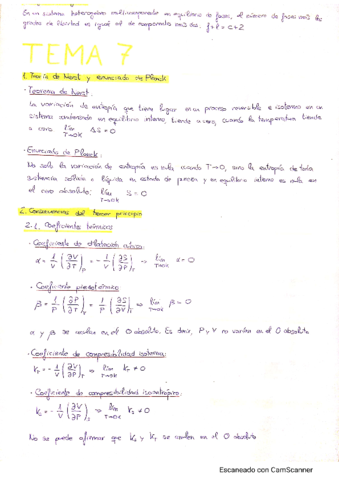 En un sistema heterogéneo multicomponente en equilibrio de fases, el número de fases más los
grados de libertad es igual al de componentes más dos. f+l = c+2
TEMA 7
1. Teoría de Nerst y enunciado de Planck
- Teorema de Nerst:
La variación de entropía que tiene lugar en un proceso reversible e isotermo en un
sistema condensado en equilibrio interno, tiende a cero, cuando la temperatura tiende
a cero lim T→0K ΔS = 0
- Enunciado de Planck:
No solo la variación de entropía es nula cuando T→0, sino la entropía de toda
sustancia sólida o líquida en estado de pureza y en equilibrio interno es nula en
el cero absoluto: lim T→0K S = 0
2. Consecuencias del tercer principio
2.1. Coeficientes térmicos
- Coeficiente de dilatación cúbica
α = 1/V (∂V/∂T)P = - 1/V (∂S/∂P)T ⇒ lim T→0K α = 0
- Coeficiente piezotérmico
β = 1/P (∂P/∂T)V = 1/P (∂S/∂V)T ⇒ lim T→0K β = 0
α y β se anulan en el 0 absoluto. Es decir, P y V no varían en el 0 absoluto
- Coeficiente de compresibilidad isoterma
KT = - 1/V (∂V/∂P)T ⇒ lim T→0K KT ≠ 0
- Coeficiente de compresibilidad isoentrópico
Ks = - 1/V (∂V/∂P)s ⇒ lim T→0K Ks ≠ 0
No se puede afirmar que Ks y KT se anulen en el 0 absoluto
Escaneado con CamScanner